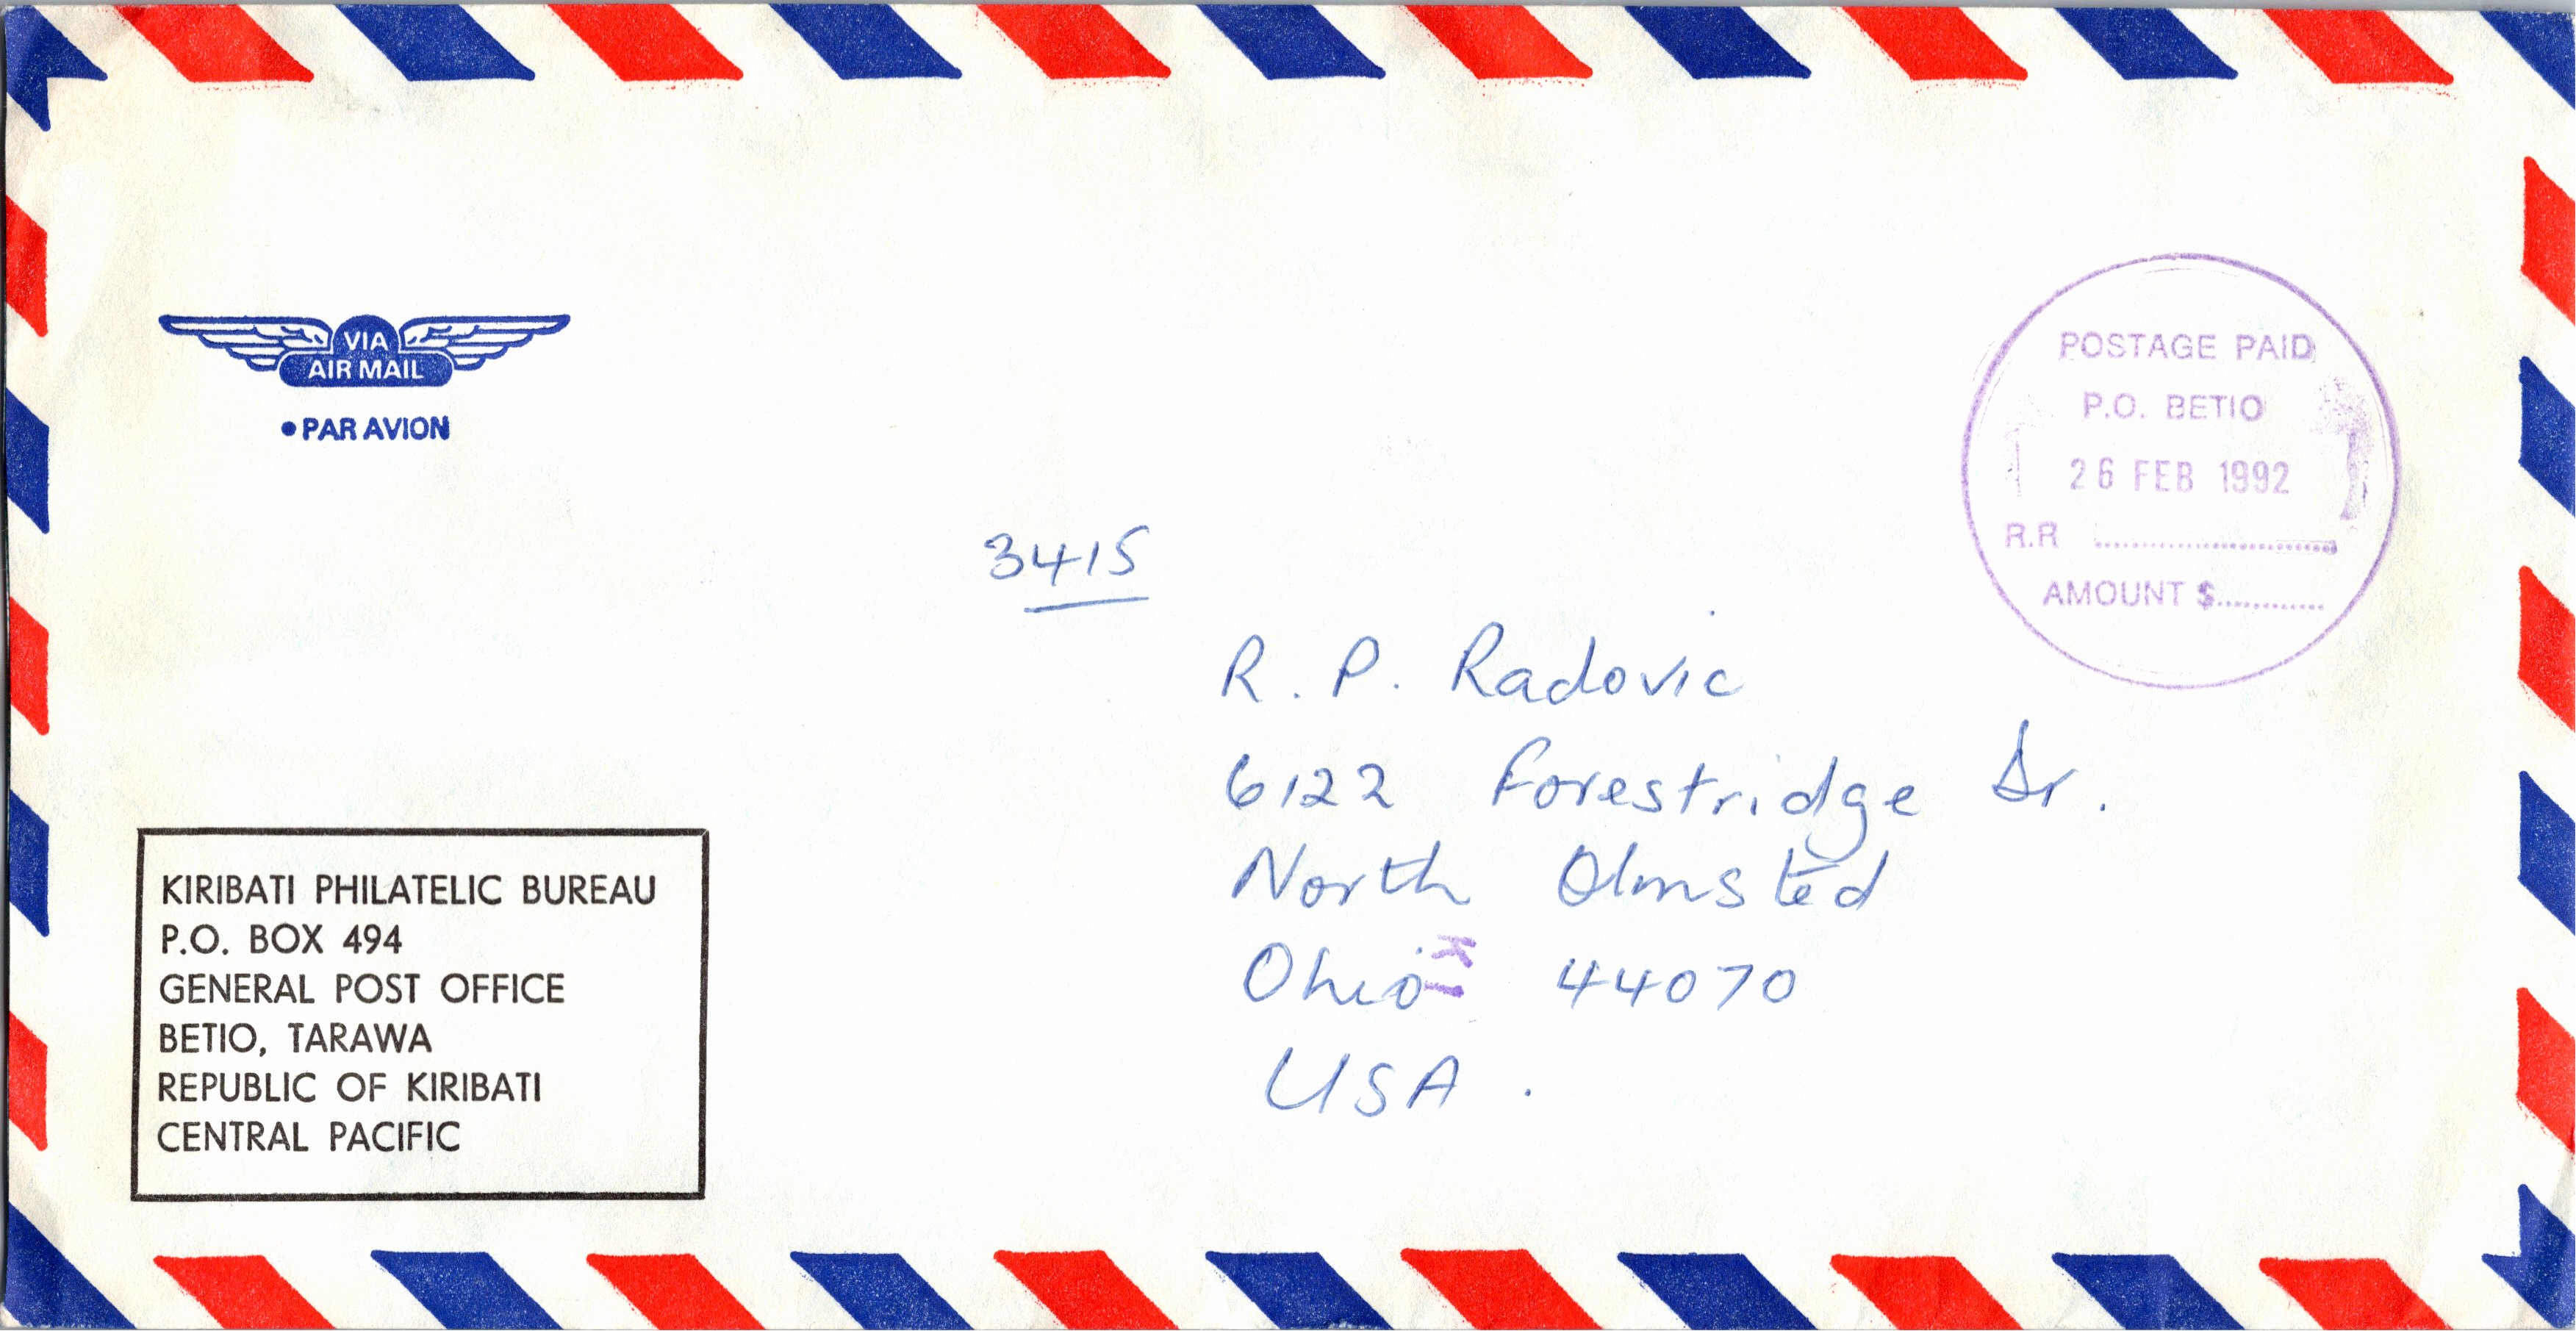 VIA
AIR MAIL
• PAR AVION
POSTAGE PAID
P.O. BETIO
26 FEB 1992
R.R ....................
AMOUNT $............
3415
R. P. Radovic
6122 Forestridge Dr.
North Olmsted
Ohio 44070
USA.
KIRIBATI PHILATELIC BUREAU
P.O. BOX 494
GENERAL POST OFFICE
BETIO, TARAWA
REPUBLIC OF KIRIBATI
CENTRAL PACIFIC